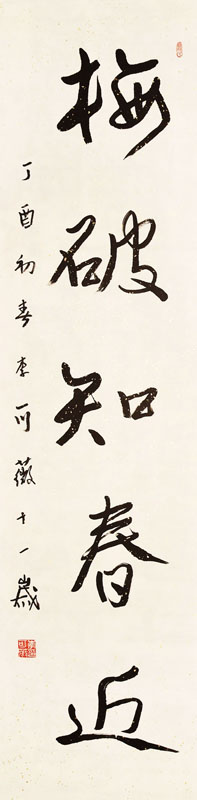 梅破知春近
丁酉初春李可薇十一歲